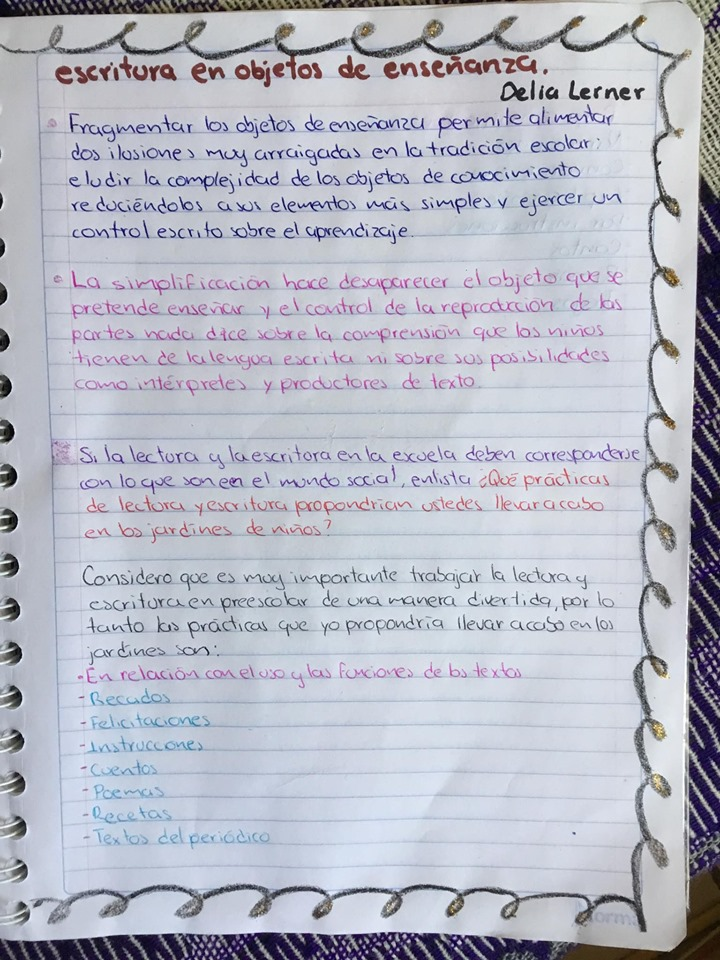 escritura en objetos de enseñanza.
Delia Lerner
Fragmentar los objetos de enseñanza permite alimentar
dos ilusiones muy arraigadas en la tradición escolar:
eludir la complejidad de los objetos de conocimiento
reduciéndolos a sus elementos más simples y ejercer un
control escrito sobre el aprendizaje.
La simplificación hace desaparecer el objeto que se
pretende enseñar y el control de la reproducción de las
partes nada dice sobre la comprensión que los niños
tienen de la lengua escrita ni sobre sus posisilidades
como intérpretes y productores de texto.
Si la lectura y la escritura en la escuela deben corresponderse
con lo que son en el mundo social, enlista ¿Qué prácticas
de lectura y escritura propondrían ustedes llevar a cabo
en los jardines de niños?
Considero que es muy importante trabajar la lectura y
escritura en preescolar de una manera divertida, por lo
tanto las prácticas que yo propondría llevar a cabo en los
jardines son:
•En relación con el uso y las funciones de los textos
-Recados
-Felicitaciones
-Instrucciones
-Cuentos
-Poemas
-Recetas
-Textos del periódico